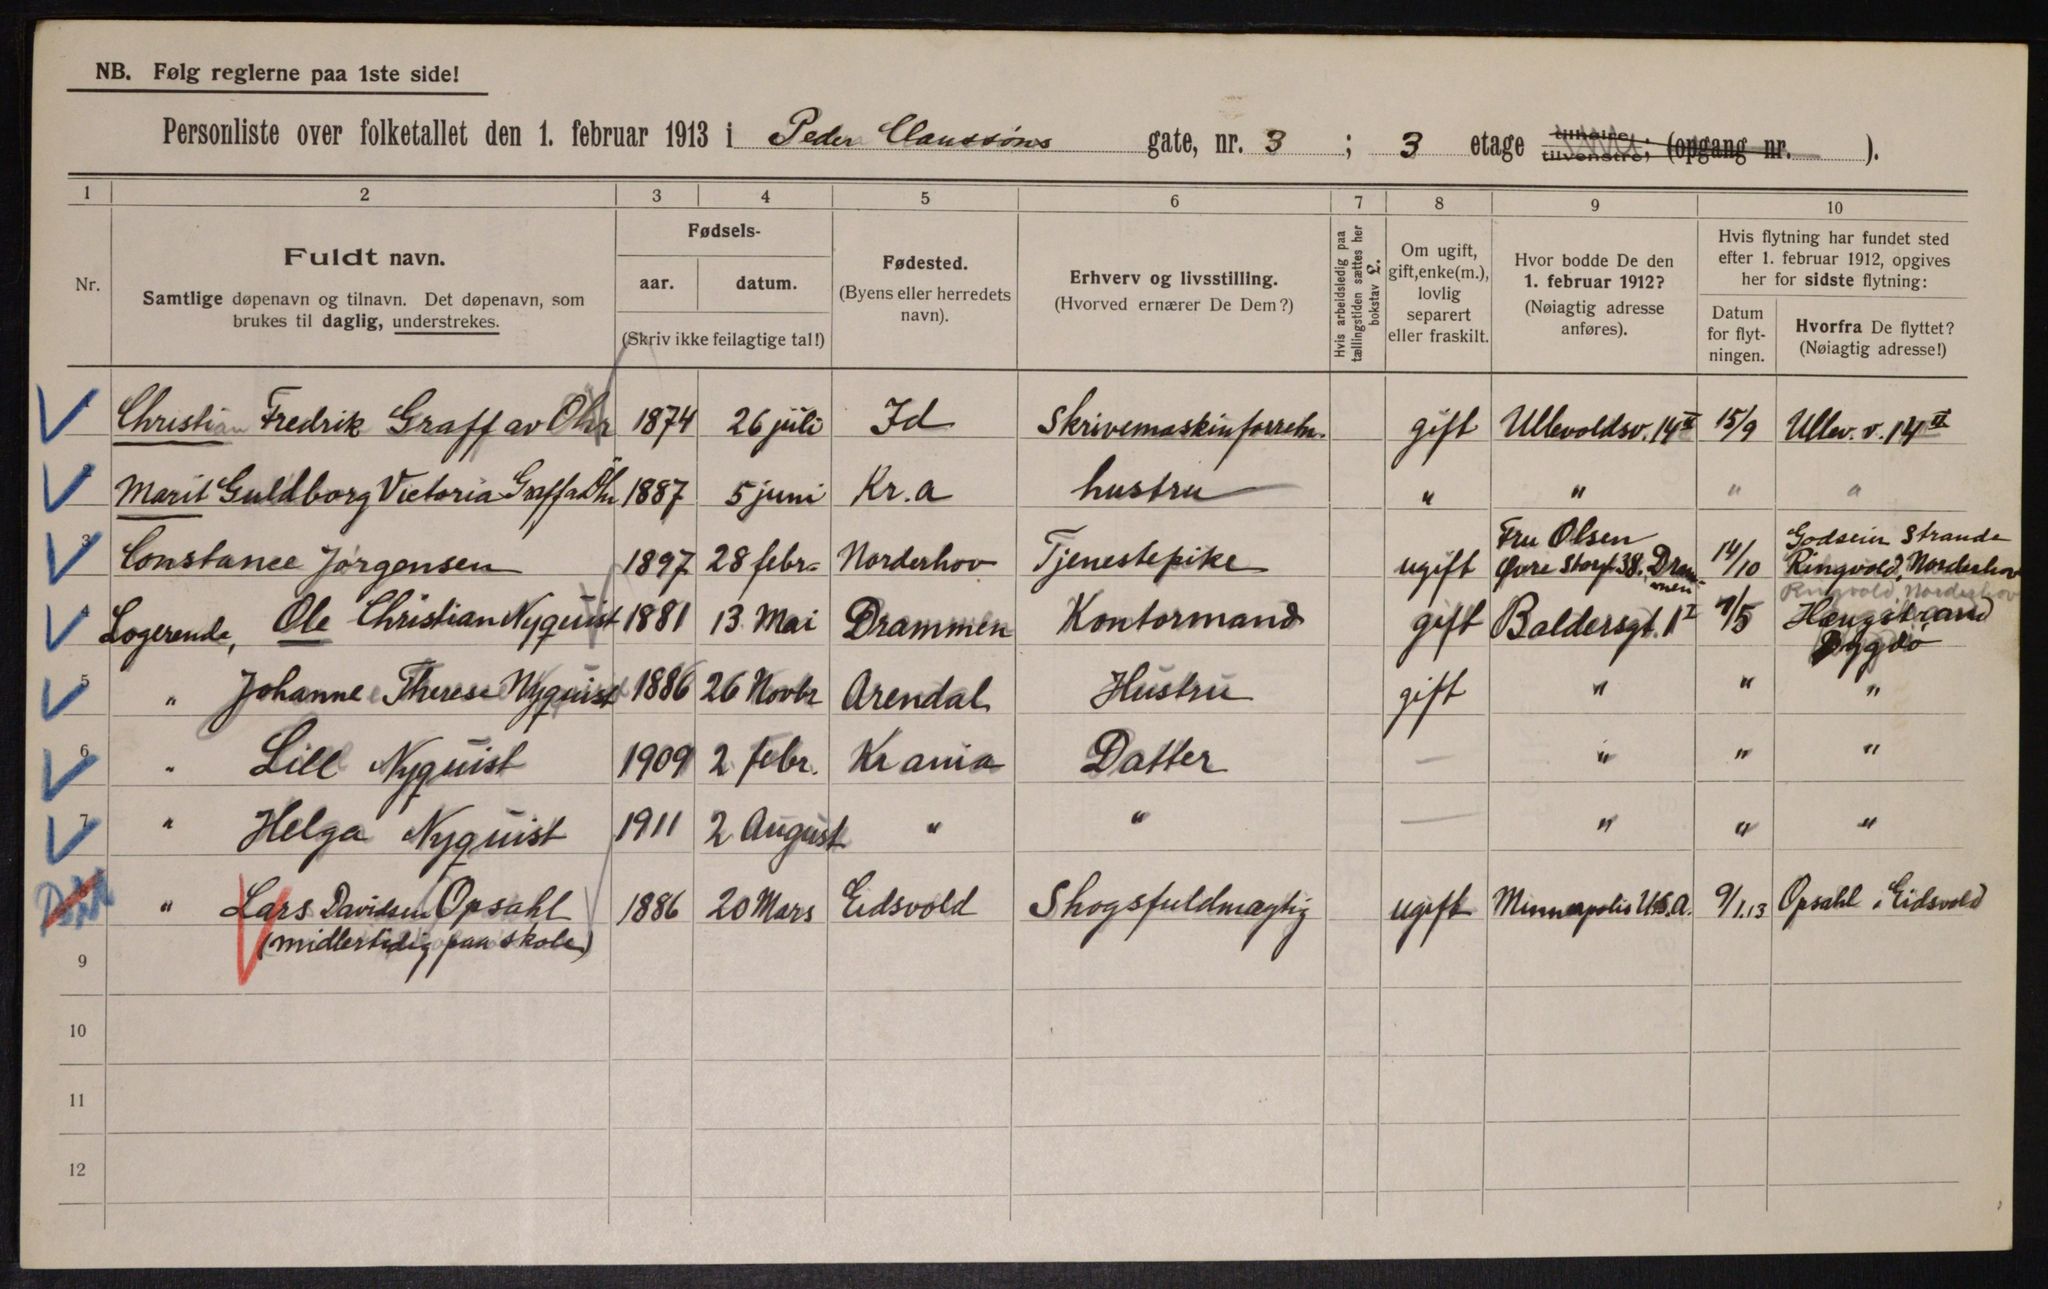 NB. Følg reglerne paa 1ste side!
Personliste over folketallet den 1. februar 1913 i Peder Claussøns gate, nr. 3 ; 3 etage tilhøire, tilvenstre; (opgang nr. ).
1 2 3 4 5 6 7 8 9 10
Nr.
Fuldt navn.
Samtlige døpenavn og tilnavn. Det døpenavn, som
brukes til daglig, understrekes.
Fødsels-
aar. datum.
(Skriv ikke feilagtige tal!)
Fødested.
(Byens eller herredets
navn).
Erhverv og livsstilling.
(Hvorved ernærer De Dem?)
Hvis arbeidsledig paa
tællingstiden sættes her
bokstav L.
Om ugift,
gift, enke(m.),
lovlig
separert
eller fraskilt.
Hvor bodde De den
1. februar 1912?
(Nøiagtig adresse
anføres).
Hvis flytning har fundet sted
efter 1. februar 1912, opgives
her for sidste flytning:
Datum
for flyt-
ningen.
Hvorfra De flyttet?
(Nøiagtig adresse!)
Christian Fredrik Graff av Ohr 1874 26 juli Id Skrivemaskinforretn. gift Ullevoldsv. 14 II 15/9 Ullev. v. 14 II
Marit Guldborg Victoria Graff 1887 5 juni Kr.a hustru " " " "
3 Constance Jørgensen 1897 28 febr. Norderhov Tjenestepike ugift Fru Olsen Øvre Storgt 38. Drammen 14/10 Strande Ringvold, Norderhov
Ringvold Norderhov
Logerende, Ole Christian Nyquist 1881 13 Mai Drammen Kontormand gift Baldersgt. 1 I 1/5 Hengstrand Bygdø
5 " Johanne Therese Nyquist 1886 26 Novbr Arendal Hustru gift " " "
6 " Lill Nyquist 1909 2 febr. Krania Datter — " " "
7 " Helga Nyquist 1911 2 August " " — " " "
8 " Lars Davidsen Opsahl 1886 20 Mars Eidsvold Skogsfuldmægtig ugift Minneapolis U.S.A. 9/1.13 Opsahl i Eidsvold
(midlertidig paa skole)
9
10
11
12